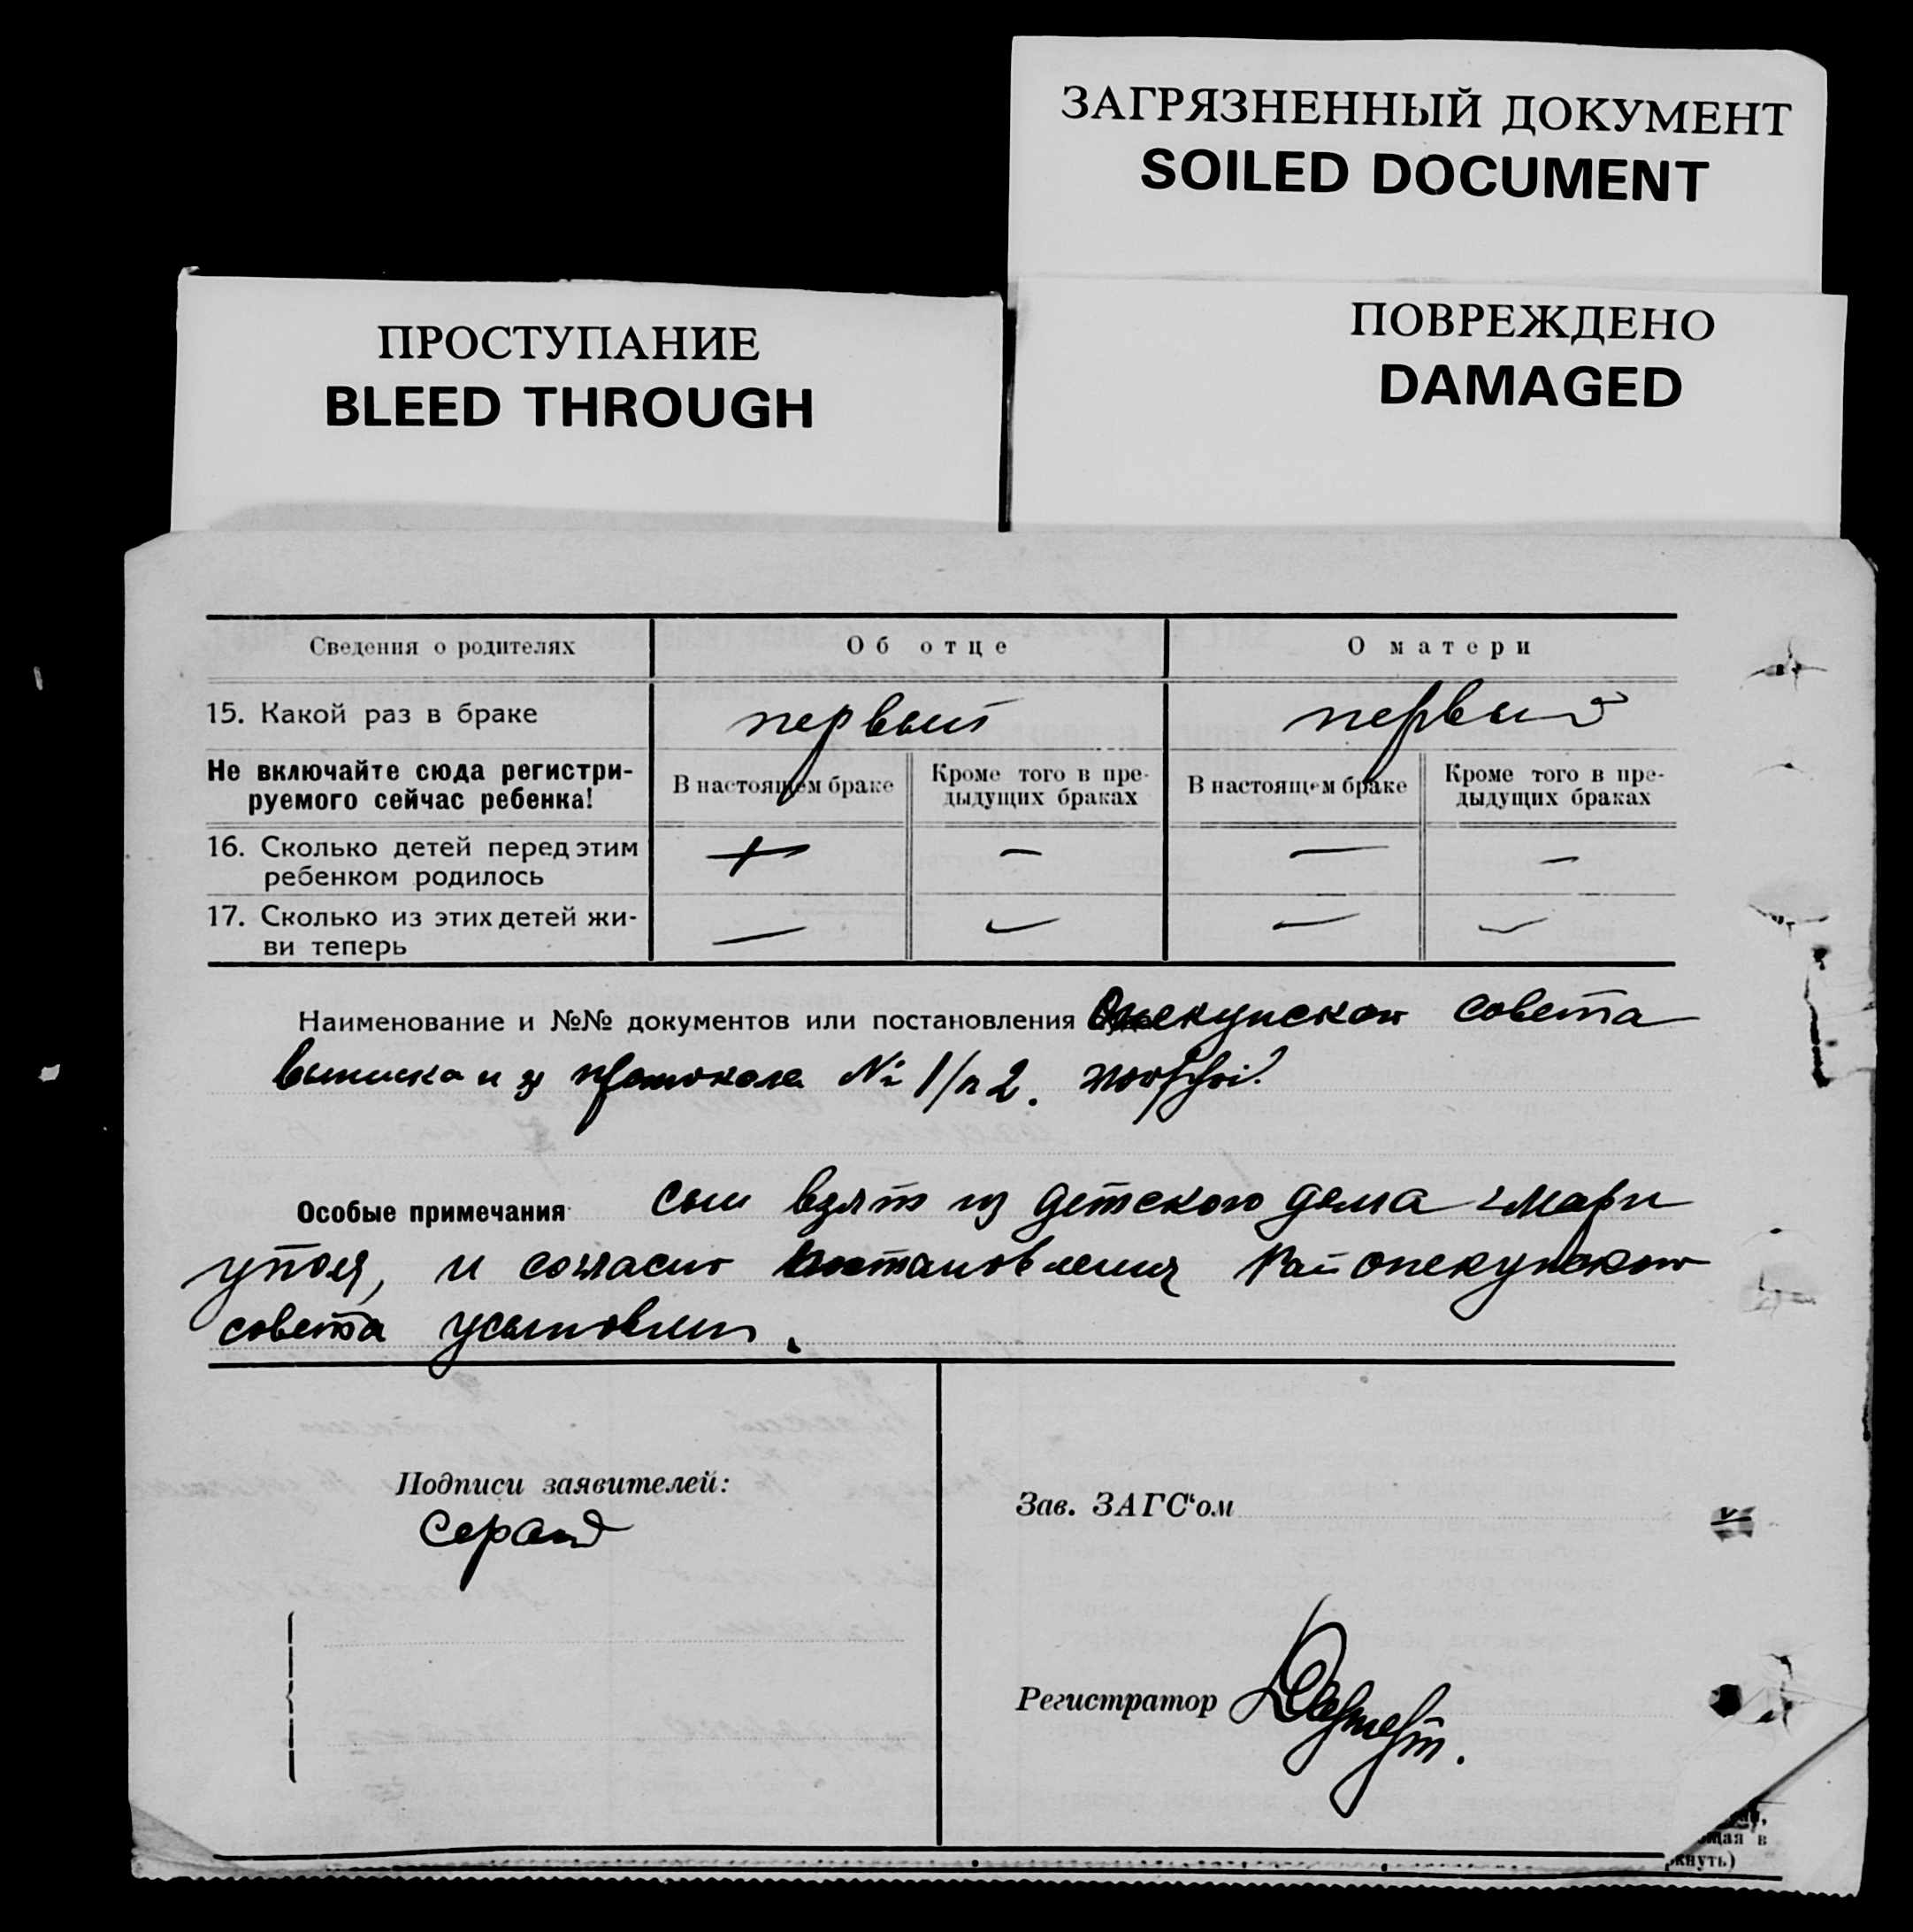 ЗАГРЯЗНЕННЫЙ ДОКУМЕНТ
SOILED DOCUMENT
ПРОСТУПАНИЕ
BLEED THROUGH
ПОВРЕЖДЕНО
DAMAGED
Сведения о родителях Об отце О матери
15. Какой раз в браке первый первый
Не включайте сюда регистри-
руемого сейчас ребенка!
В настоящем браке
Кроме того в пре-
дыдущих браках
В настоящем браке
Кроме того в пре-
дыдущих браках
16. Сколько детей перед этим
ребенком родилось + — — —
17. Сколько из этих детей жи-
ви теперь — — — —
Наименование и №№ документов или постановления Опекунског совета
выписка из протокола № 1/п2.
Особые примечания сын взят из детского дома г Мари
уполя, и согласно постановления Райопекунского
совета усыновлен.
Подписи заявителей:
Зав. ЗАГС‘ом
Регистратор
щая в
кнуть)